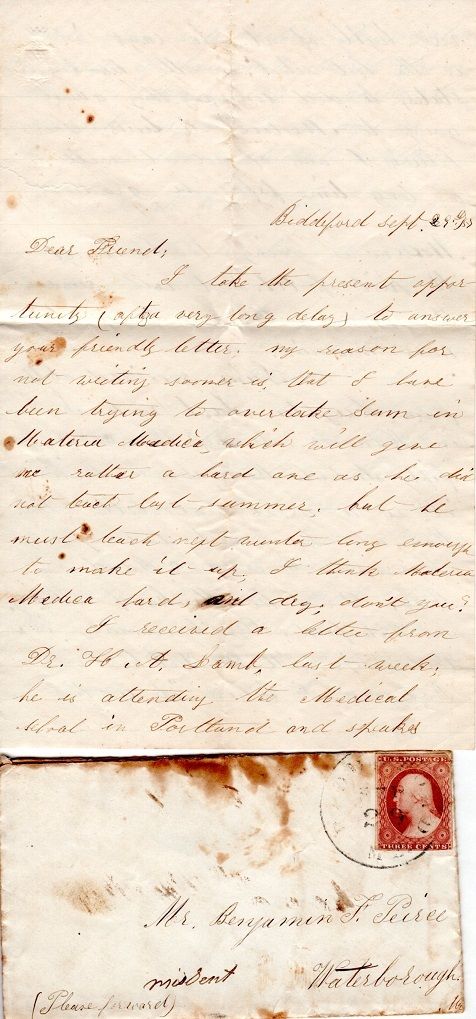 Biddeford Sept. 29th/55
Dear Friend,
I take the present oppor
tunity (after very long delay) to answer
your friendly letter. my reason for
not writing sooner is that I have
been trying to overtake Sam in
Materia Medica, which will give
me rather a hard one as he did
not teach last summer, but he
must teach next winter long enough
to make it up. I think Materia
Medica hard, and dry, don't you?
I received a letter from
Dr. H. A. Lamb, last week,
he is attending the Medical
school in Portland and speaks
U.S. POSTAGE
THREE CENTS
Mr. Benjamin F. Peirce
missent Waterborough
(Please forward)